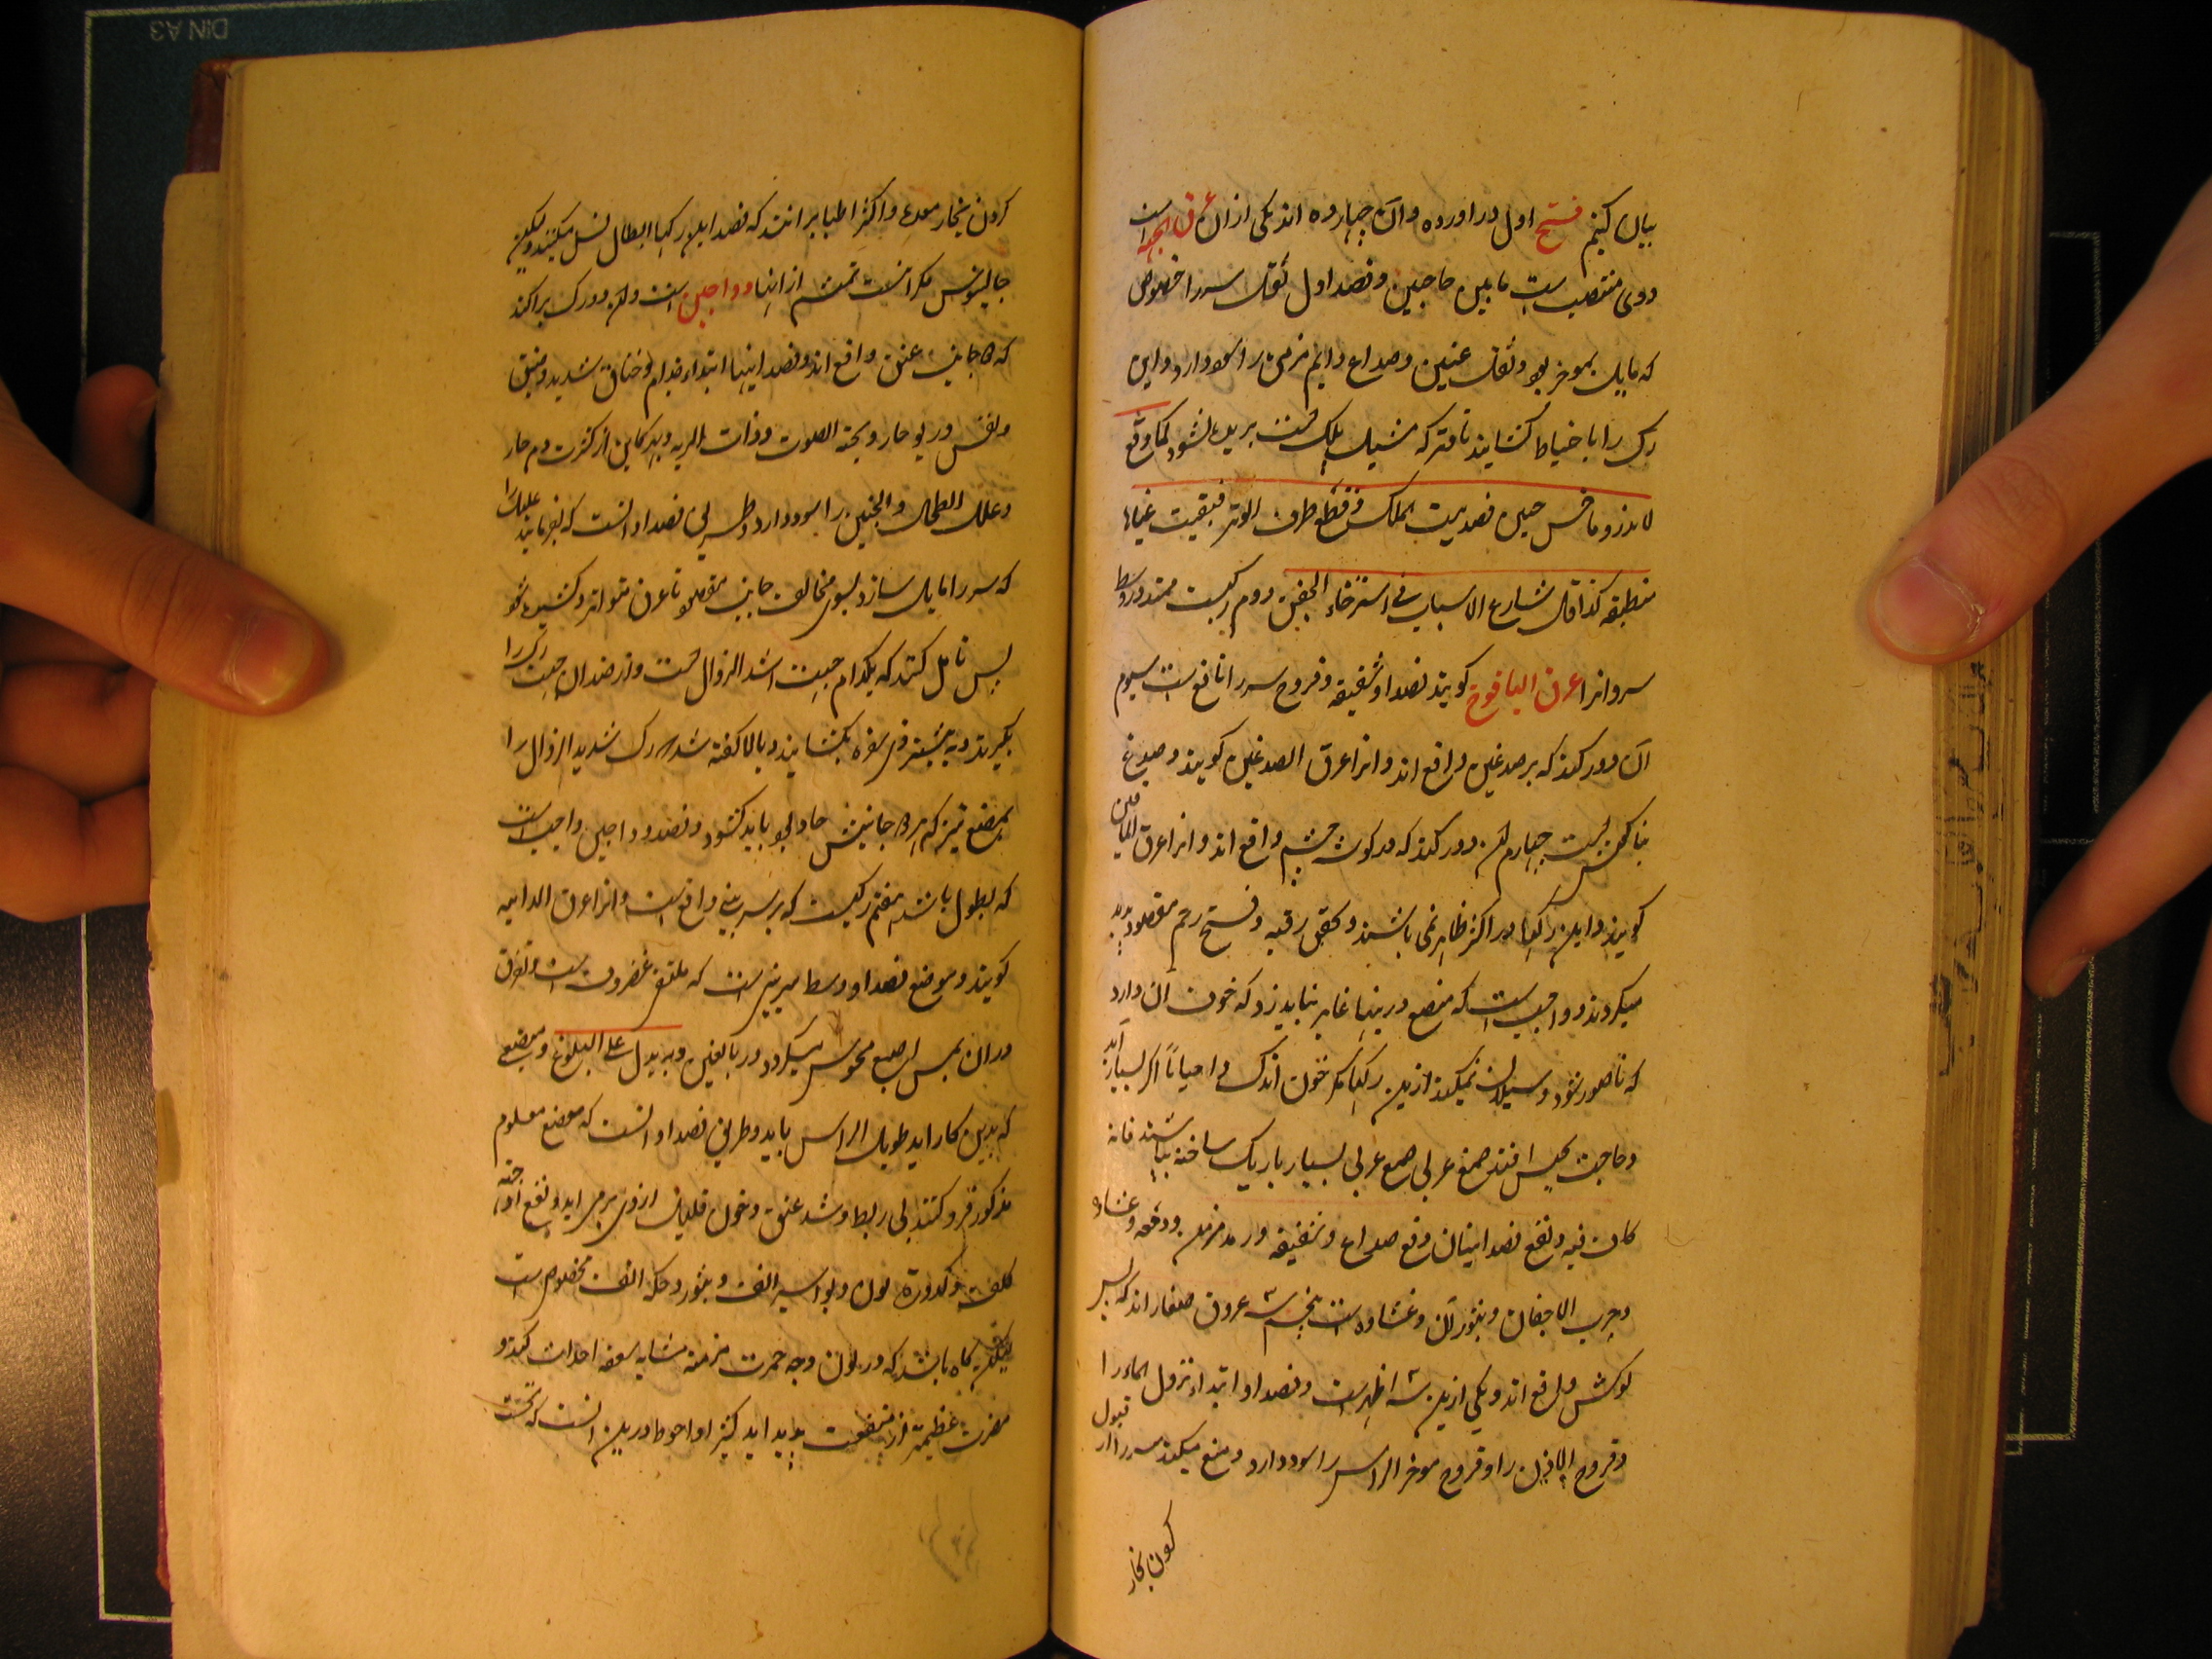 بیان کنیم فتح اول در اورده و ان چهارده اند یکی از ان عرق الجبهه است
و وی منتصب است مابین حاجبین و فصد اول ثقل سر را خصوص
که مایل بموخر بود و ثقل عینین و صداع دایم مزمن را سود دارد و این
رک را باحتیاط کشایند تا وتر که مشیل پلک است بریده نشود کما وقع
حین فصد بیت الملک فقطع طرف الوتر فبقیت عینا
منطبقة کذا قال شارح الاسباب فی استرخاء الجفن دوم رکیست ممتد در وسط
سر و انرا عرق الیافوخ کویند فصد او شقیقه و قروح سر را نافع است سیوم
ان دو رکند که بر صدغین واقع اند و انرا عرق الصدغین کویند و صدغ
بناکوش است چهارم ان دو رکند که در کوشه چشم واقع اند و انرا عرق الماقین
کویند و این رکها در اکثر ظاهر نمی باشند و بخنق رقبه و فتح رحم مقصود پدید
میکردند و واجب است که مبضع درینها غایر نباید زد که خوف ان دارد
که ناصور شود و سیلان نمیکند ازین رکها مکر خون اندک و احیانا اکر بسیار آید
و حاجت بحبس افتد صمغ عربی بسیار باریک ساخته بپاشند فانه
کاف فیه و نفع فصد اینان دفع صداع و شقیقه و رمد مزمن و دمعه و غشاوه
و جرب الاجفان و بثور ان و غشاوه است پنجم سه عروق صغار اند که پس
کوش واقع اند و یکی ازین سه اظهر است و فصد او ابتداء نزول الماء را
و قروح الاذن را و قروح موخر الراس را سود دارد و منع میکند سر را از قبول
کردن بخار
کردن بخار معده و اکثر اطبا بر انند که فصد این رکها ابطال نسل میکنند ولیکن
جالینوس منکر انست ششم از انها وداجین است و ان دو رک براکند
که جانب عنق واقع اند و فصد اینها ابتداء جذام و خناق شدید و ضیق
نفس و ربو حار و بحة الصوت و ذات الریه و بهر کاین از کثرت دم حار
و علل الطحال و الجنبین را سود دارد و طریق فصد او انست که بفرمایند علیل را
که سر را مایل سازد بسوی مخالف جانب مقصود تا عرق متواتر و کشیده شود
پس تامل کنند که بکدام جهت اشد الزوال است و از ضد ان جهت رک را
بکیرند و به نیشتر وی سفره بکشایند و بالا کفته شد رک شدید الزوال را
بمبضع تیز که هر جانبش حاد بود باید کشود و فصد وداجین واجب است
که بطول باشد هفتم رکیست که بر سر بینی واقع است و انرا عرق الارنبه
کویند و موضع فصد او وسط سر بینی است که ملتقی غضروف است و تفرق
در ان بمس اصبع محسوس میکردد در بالغین و یدل علی البلوغ و مبضع
که بدین کار اید طویل الراس باید و طریق فصد او انست که مبضع بموضع معلوم
مذکور فرو کنند بی ربط و شد عنق و خون قلیل از وی برمی اید و نفع او
کلف و کدورة لون و بواسیر الانف و بثور و حکه انف مخصوص است
لیکن کاه باشد که در لون وجه حمرت مزمنه مشابه سعفه احداث کند و
مضرت عظیمتر از منفعت پدید اید کثیرا و احوط درین انست که نخست